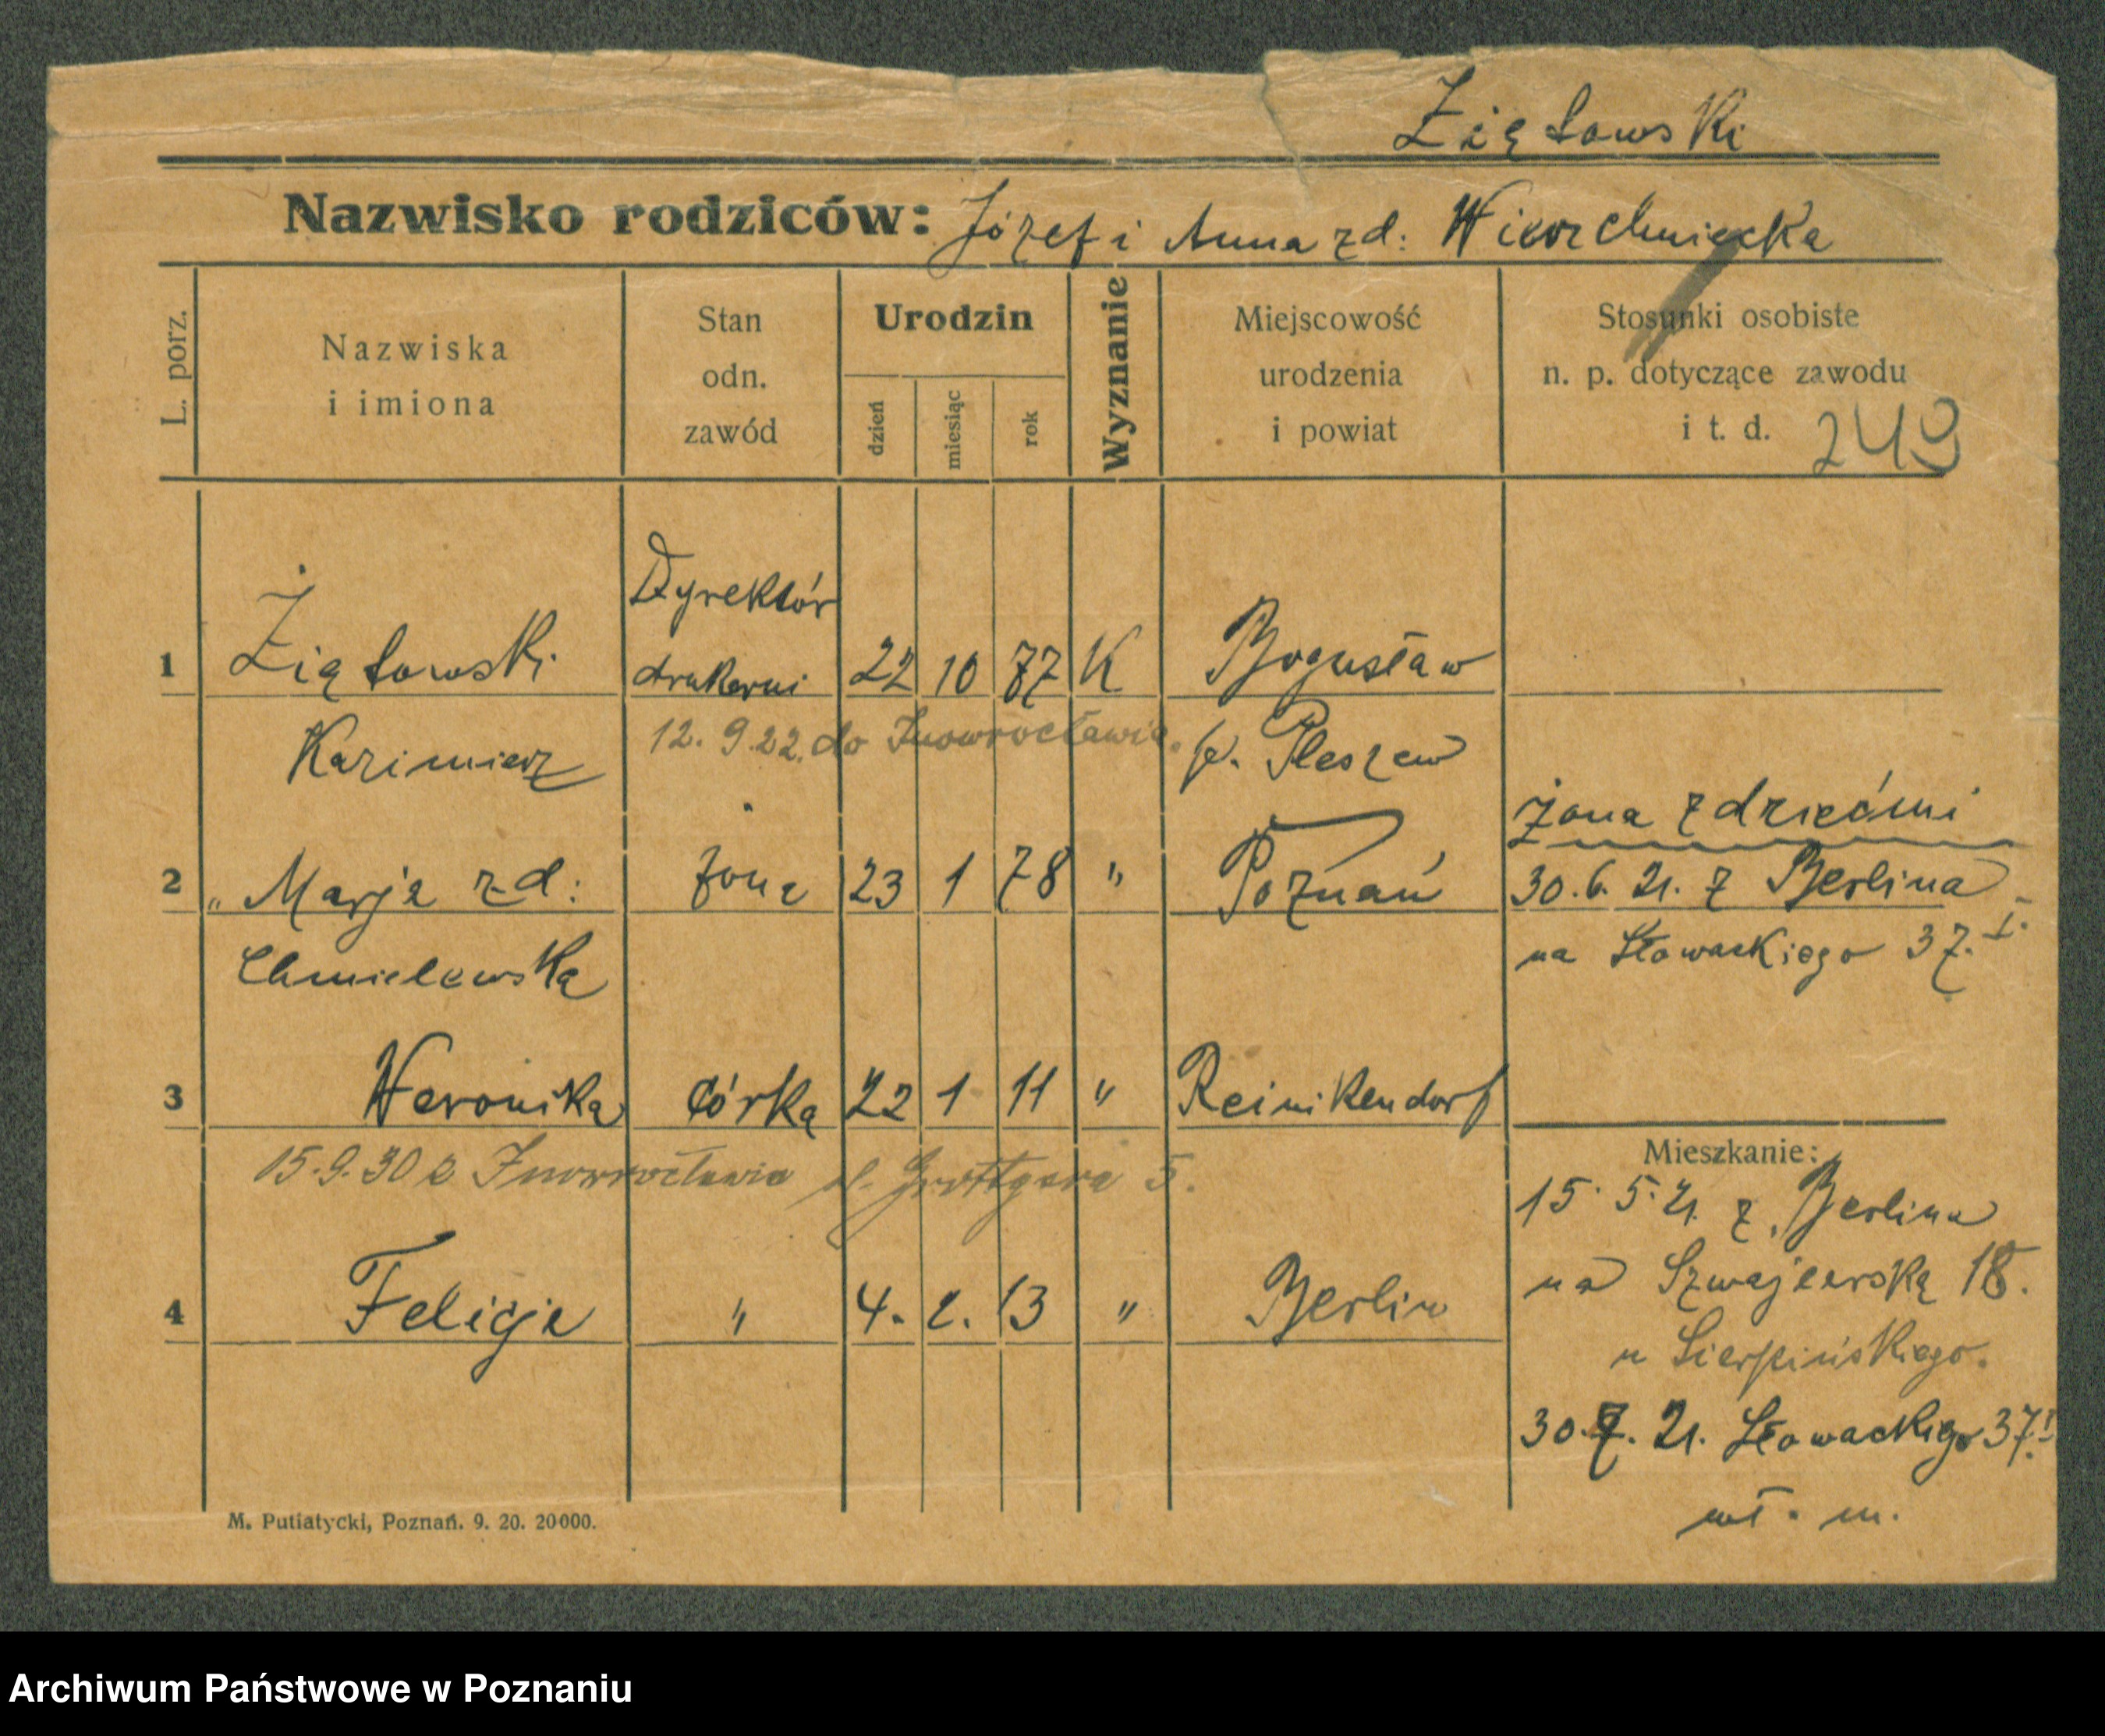 Ziętowski
Nazwisko rodziców: Józef i Anna zd: Wierzchniecka
L. porz.
Nazwiska
i imiona
Stan
odn.
zawód
Urodzin
dzień
miesiąc
rok
Wyznanie
Miejscowość
urodzenia
i powiat
Stosunki osobiste
n. p. dotyczące zawodu
i t. d. 249
Dyrektór
1 Żiętowski drukarni 22 10 77 K Bogusław
Kazimierz 12. 9. 22. do Inowrocławia. p. Pleszew
żona z dziećmi
2 „ Marja zd: żona 23 1 78 " Poznań 30. 6. 21. z Berlina
Chmielewska na Słowackiego 37. I.
3 Weronika córka 22 1 11 " Reinikendorf
Mieszkanie:
15. 9. 30 z Inowrocławia pl. Grottgera 5. 15. 5. 21. z Berlina
na Szwajcarską 18.
4 Felicja " 4. 2. 13 " Berlin
u Sierpińskiego.
30. 7. 21. Słowackiego 37. I
wł. m.
M. Putiatycki, Poznań. 9. 20. 20000.
Archiwum Państwowe w Poznaniu